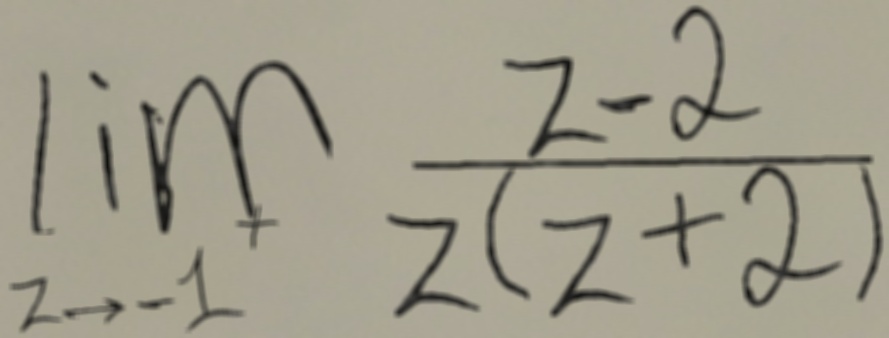 \lim_{z \to -1^+} \frac{z-2}{z(z+2)}